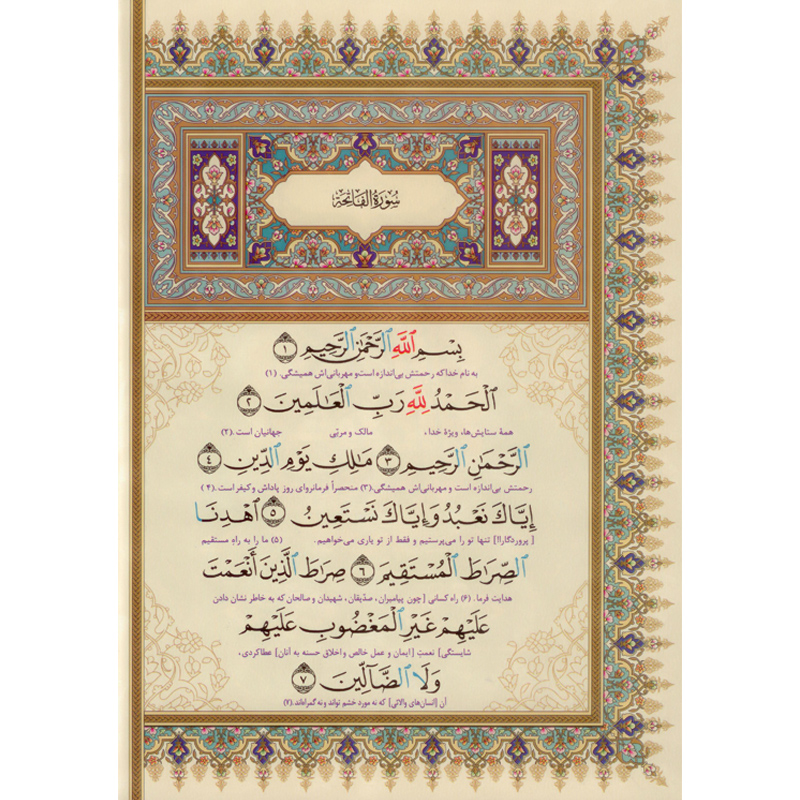 سُورَةُ الْفَاتِحَةِ
بِسْمِ اللَّهِ الرَّحْمَٰنِ الرَّحِيمِ ١
به نام خدا که رحمتش بی‌اندازه است و مهربانی‌اش همیشگی. (۱)
الْحَمْدُ لِلَّهِ رَبِّ الْعَالَمِينَ ٢
همهٔ ستایش‌ها، ویژهٔ خدا، مالک و مربّی جهانیان است. (۲)
الرَّحْمَٰنِ الرَّحِيمِ ٣ مَالِكِ يَوْمِ الدِّينِ ٤
رحمتش بی‌اندازه است و مهربانی‌اش همیشگی. (۳) منحصراً فرمانروای روز پاداش و کیفر است. (۴)
إِيَّاكَ نَعْبُدُ وَإِيَّاكَ نَسْتَعِينُ ٥ اهْدِنَا
[پروردگارا!] تنها تو را می‌پرستیم و فقط از تو یاری می‌خواهیم. (۵) ما را به راهِ مستقیم
الصِّرَاطَ الْمُسْتَقِيمَ ٦ صِرَاطَ الَّذِينَ أَنْعَمْتَ
هدایت فرما. (۶) راه کسانی [چون پیامبران، صدّیقان، شهیدان و صالحان که به خاطر نشان دادن
عَلَيْهِمْ غَيْرِ الْمَغْضُوبِ عَلَيْهِمْ
شایستگی] نعمتِ [ایمان و عمل خالص و اخلاق حسنه به آنان] عطا کردی،
وَلَا الضَّآلِّينَ ٧
آن [انسان‌های والائی] که نه مورد خشم تواند و نه گمراه‌اند. (۷)